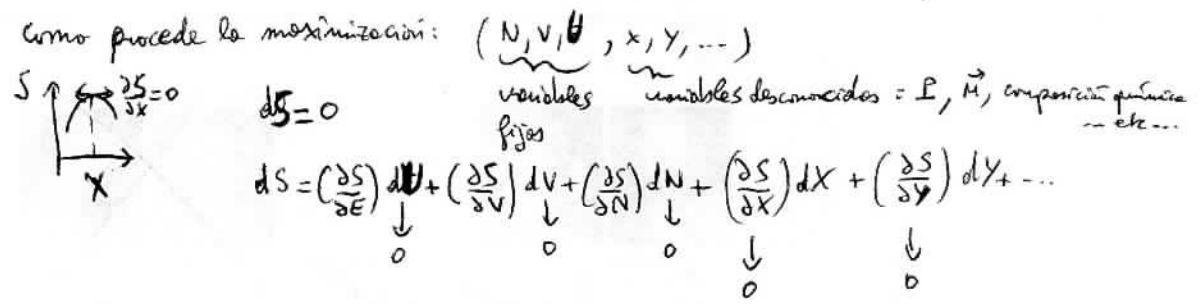 como procede la maximización: (N, V, U, x, y, ...)
variables fijos
variables desconocidas = P, M⃗, composición química ... etc ...
S ∂S/∂x = 0
X
dS = 0
dS = (∂S/∂E) dU + (∂S/∂V) dV + (∂S/∂N) dN + (∂S/∂X) dX + (∂S/∂y) dY + ...
↓ ↓ ↓ ↓ ↓
0 0 0 0 0